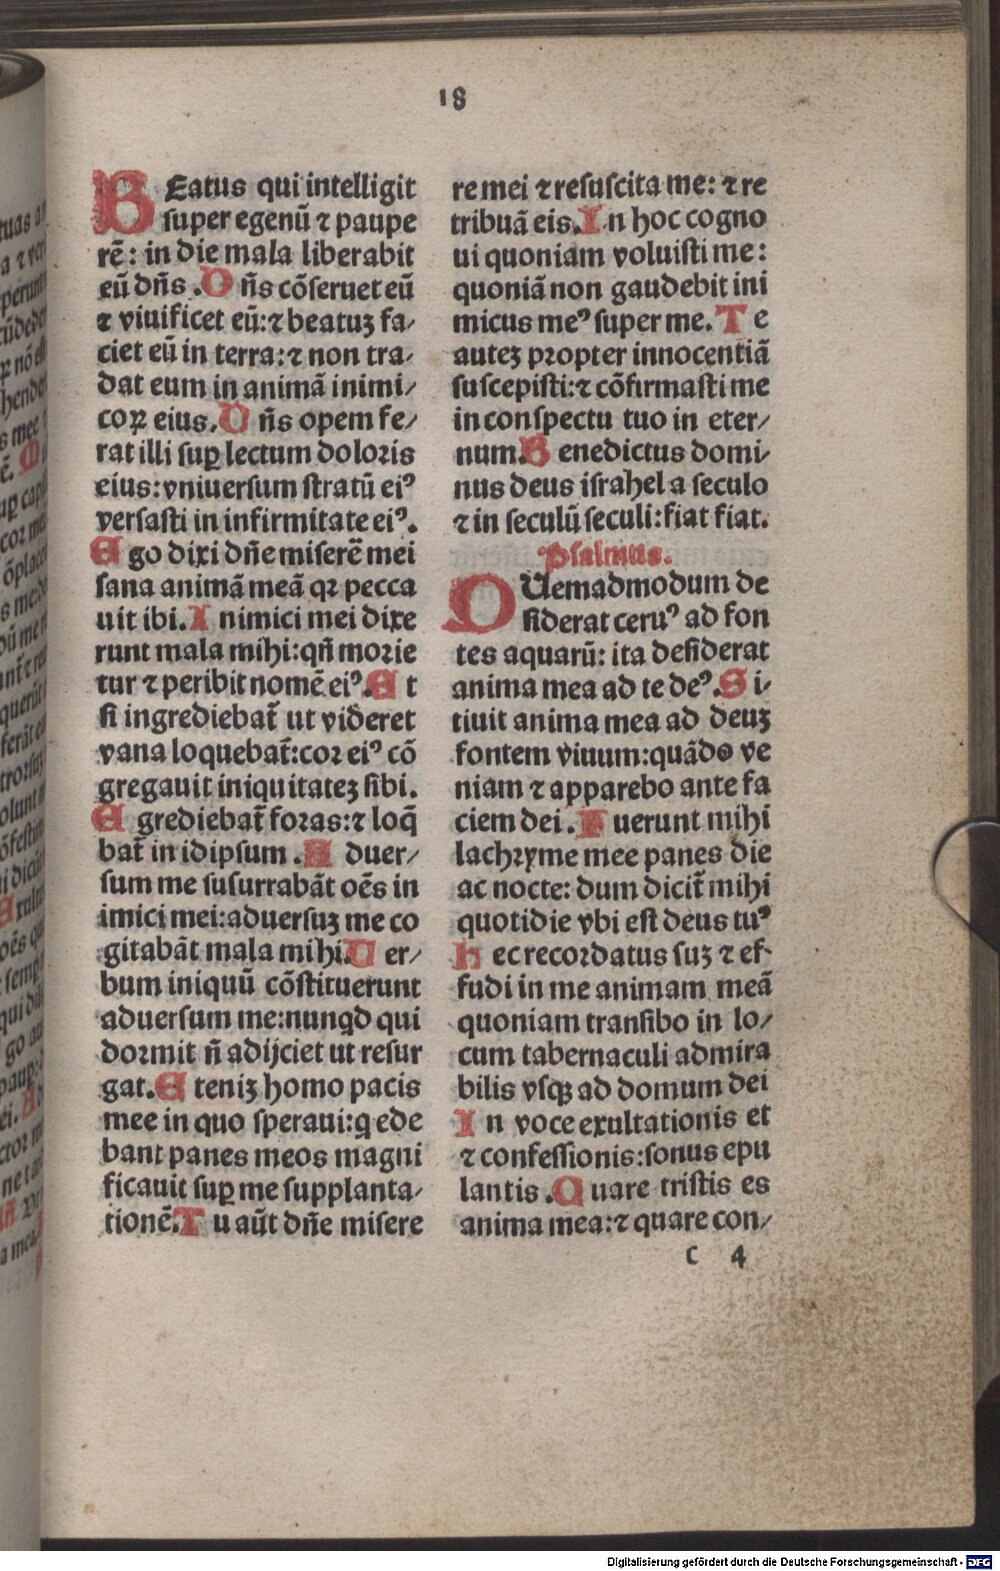 18
BEatus qui intelligit
super egenū ⁊ paupe
rē: in die mala liberabit
eū dn̄s. Dn̄s cōseruet eū
⁊ viuificet eū:⁊ beatuʒ fa/
ciet eū in terra:⁊ non tra/
dat eum in animā inimi/
coꝝ eius. Dn̄s opem fe/
rat illi suꝑ lectum doloꝛis
eius: vniuersum stratū eiꝰ
versasti in infirmitate eiꝰ.
Ego dixi dn̄e miserē mei
sana animā meā qꝛ pecca
uit ibi. Inimici mei dixe
runt mala mihi: qn̄ moꝛie
tur ⁊ peribit nomē eiꝰ. Et
si ingrediebat̄ ut videret
vana loquebat̄: coꝛ eiꝰ cō
gregauit iniquitateʒ sibi.
Egrediebat̄ foꝛas:⁊ loq̄
bat̄ in idipsum. Aduer/
sum me susurrabāt oēs in
imici mei: aduersuʒ me co
gitabāt mala mihi. Uer/
bum iniquū cōstituerunt
aduersum me: nunqd qui
doꝛmit n̄ adijciet ut resur
gat. Eteniʒ homo pacis
mee in quo speraui: q ede
bant panes meos magni
ficauit suꝑ me supplanta/
tionē. Tu aūt dn̄e misere
re mei ⁊ resuscita me: ⁊ re
tribuā eis. In hoc cogno
ui quoniam voluisti me:
quoniā non gaudebit ini
micus meꝰ super me. Te
auteʒ pꝛopter innocentiā
suscepisti:⁊ cōfirmasti me
in conspectu tuo in eter/
num. Benedictus domi/
nus deus israhel a seculo
⁊ in seculū seculi: fiat fiat.
Psalmus.
QUemadmodum de
siderat ceruꝰ ad fon
tes aquarū: ita desiderat
anima mea ad te deꝰ. Si/
tiuit anima mea ad deuʒ
fontem viuum: quādo ve
niam ⁊ apparebo ante fa
ciem dei. Fuerunt mihi
lachꝛyme mee panes die
ac nocte: dum dicit̄ mihi
quotidie vbi est deus tuꝰ
Hec recoꝛdatus suʒ ⁊ ef-
fudi in me animam meā
quoniam transibo in lo/
cum tabernaculi admira
bilis vsqꝫ ad domum dei
In voce exultationis et
⁊ confessionis: sonus epu
lantis. Quare tristis es
anima mea:⁊ quare con/
c 4
Digitalisierung gefördert durch die Deutsche Forschungsgemeinschaft - DFG